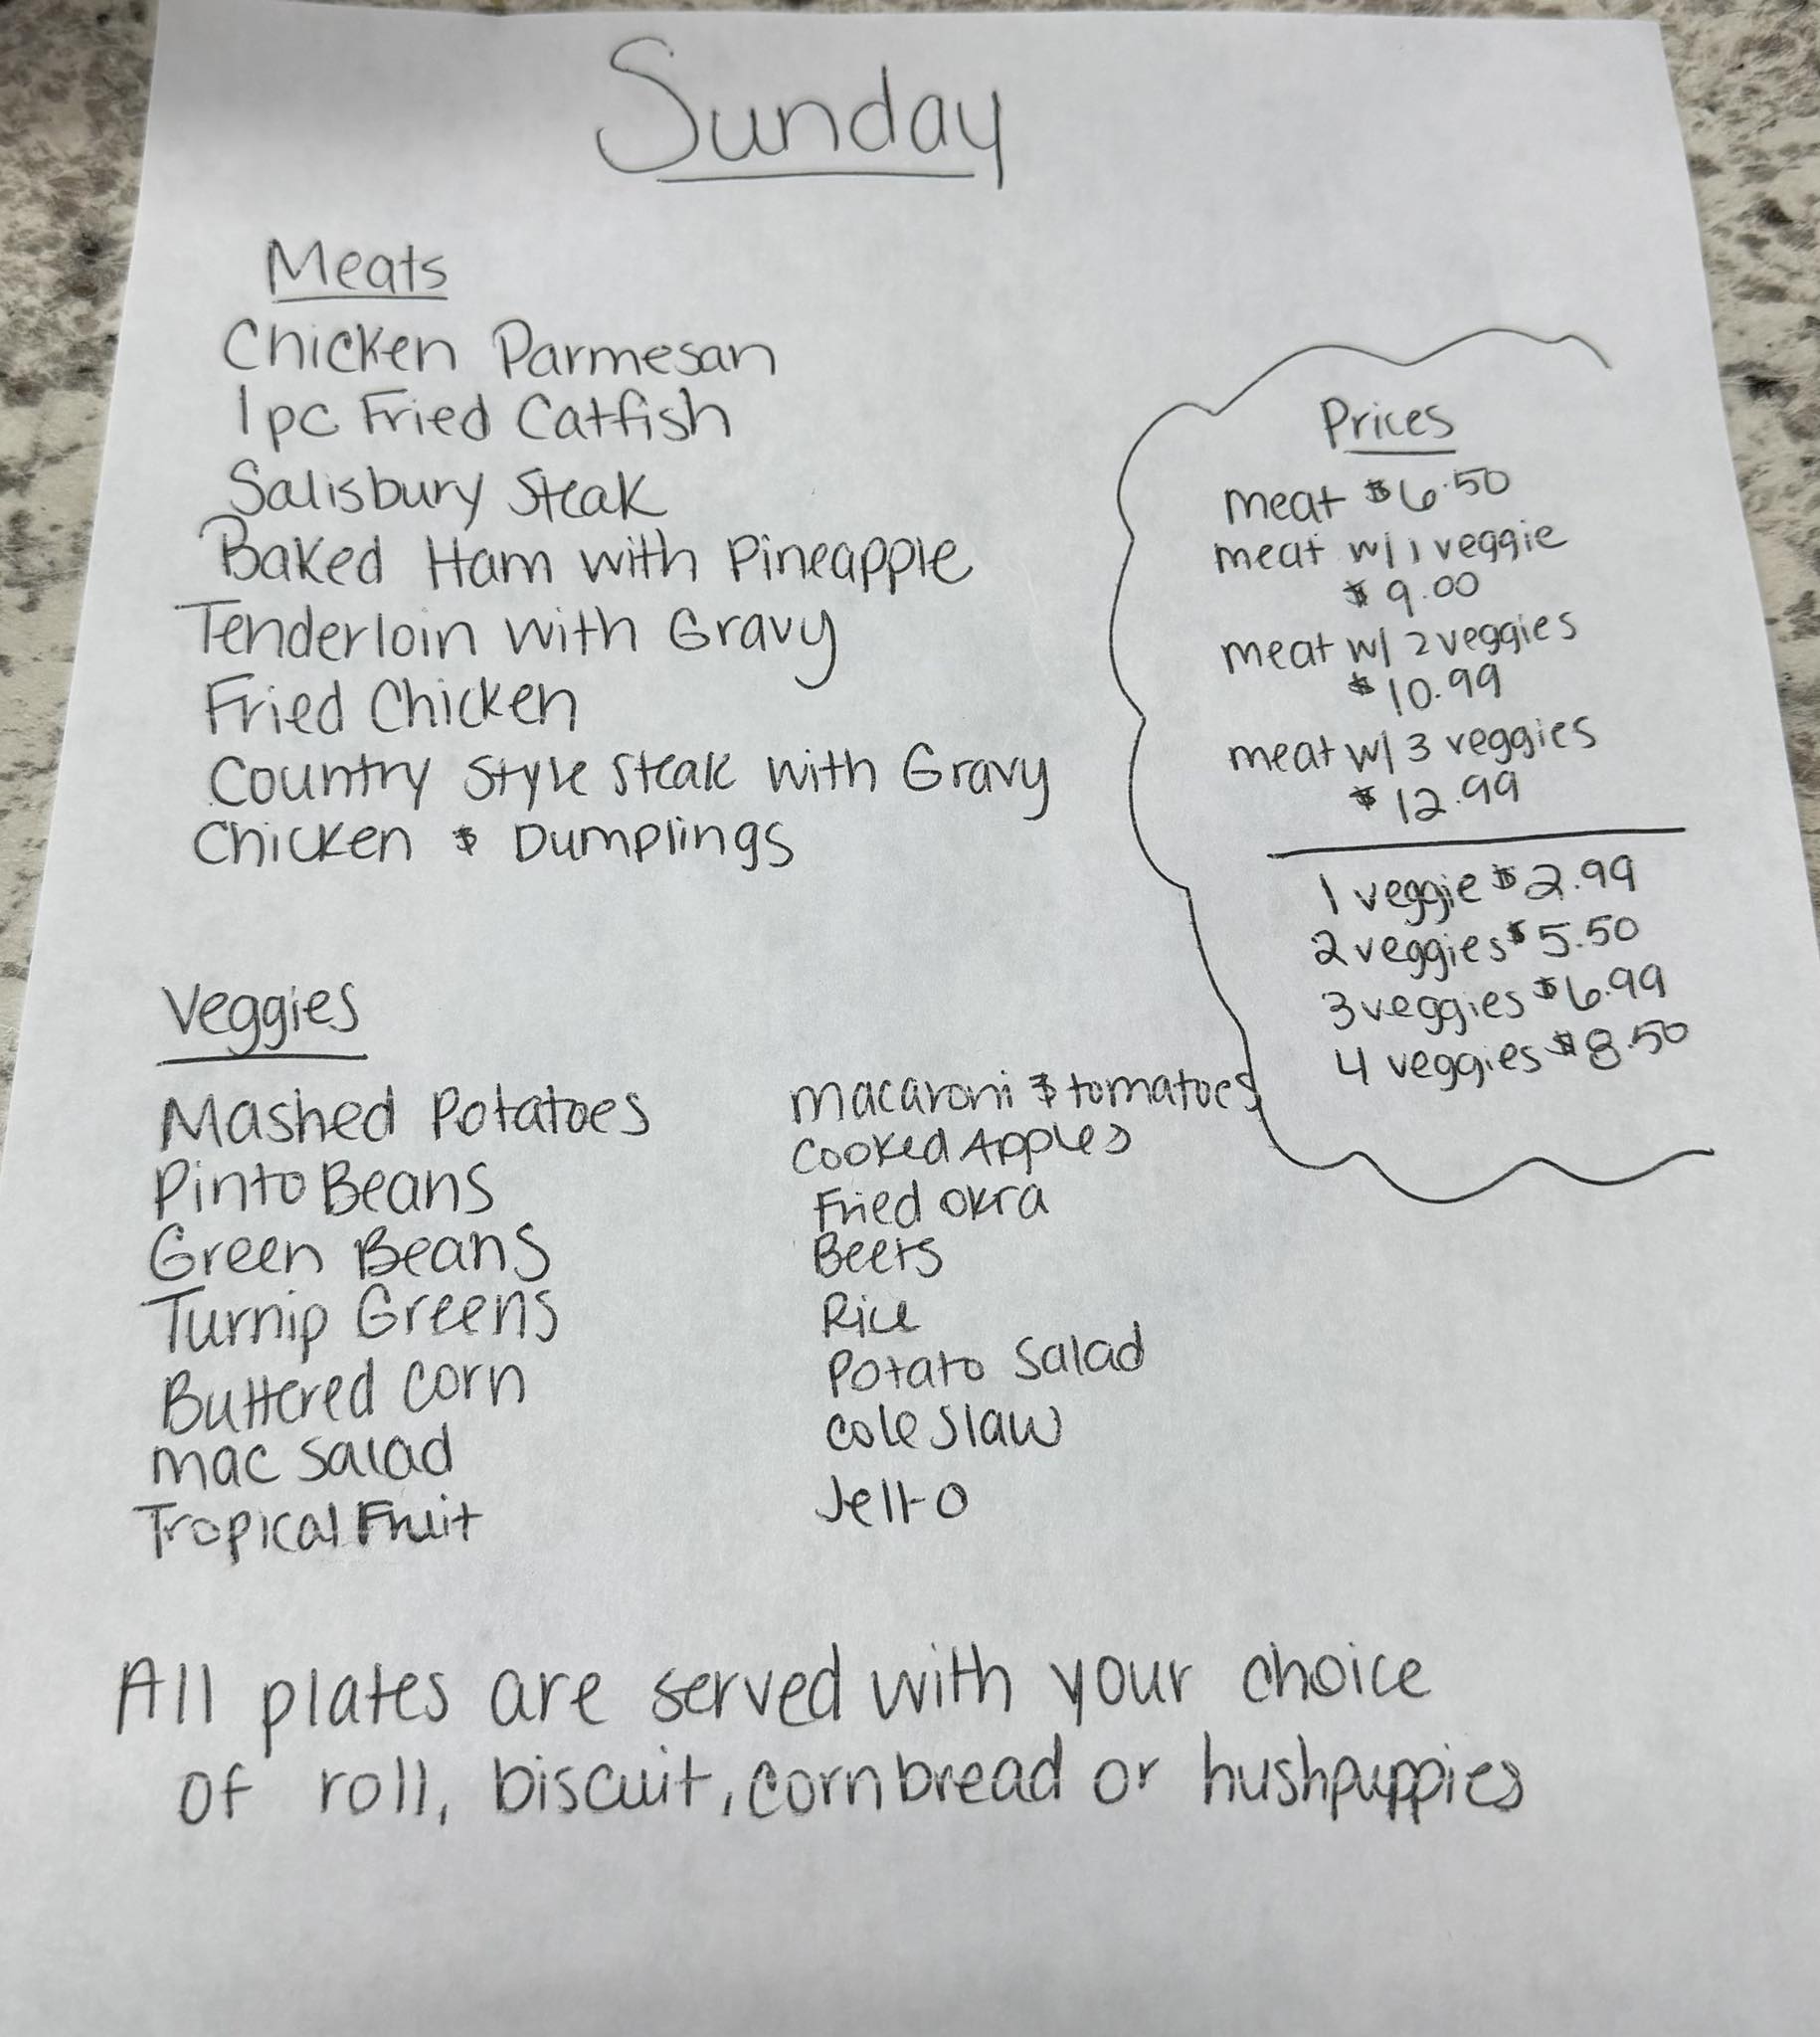 Sunday
Meats
Chicken Parmesan
1 pc Fried Catfish
Salisbury Steak
Baked Ham with Pineapple
Tenderloin with Gravy
Fried Chicken
Country Style Steak with Gravy
Chicken & Dumplings
Prices
meat $6.50
meat w/ 1 veggie
$9.00
meat w/ 2 veggies
$10.99
meat w/ 3 veggies
$12.99
1 veggie $2.99
2 veggies $5.50
3 veggies $6.99
4 veggies $8.50
Veggies
Mashed Potatoes
Pinto Beans
Green Beans
Turnip Greens
Buttered Corn
mac salad
Tropical Fruit
macaroni & tomatoes
Cooked Apples
Fried okra
Beets
Rice
Potato Salad
Cole Slaw
Jello
All plates are served with your choice
of roll, biscuit, cornbread or hushpuppies